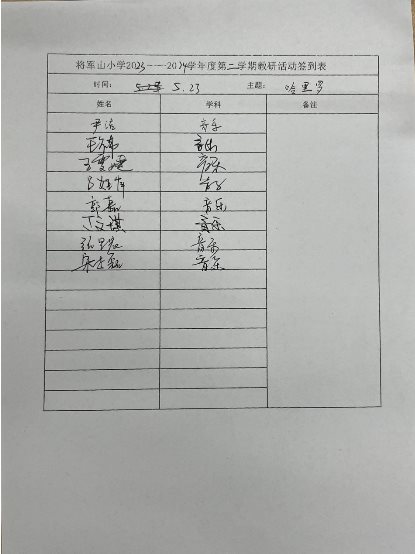 将军山小学2023——2014学年度第二学期教研活动签到表
时间: 5.23 主题: 哈里罗
姓名 学科 备注
尹洁 音乐
音乐
王雪 音乐
音乐
郭磊 音乐
丁文琪 音乐
张 音乐
宋 音乐